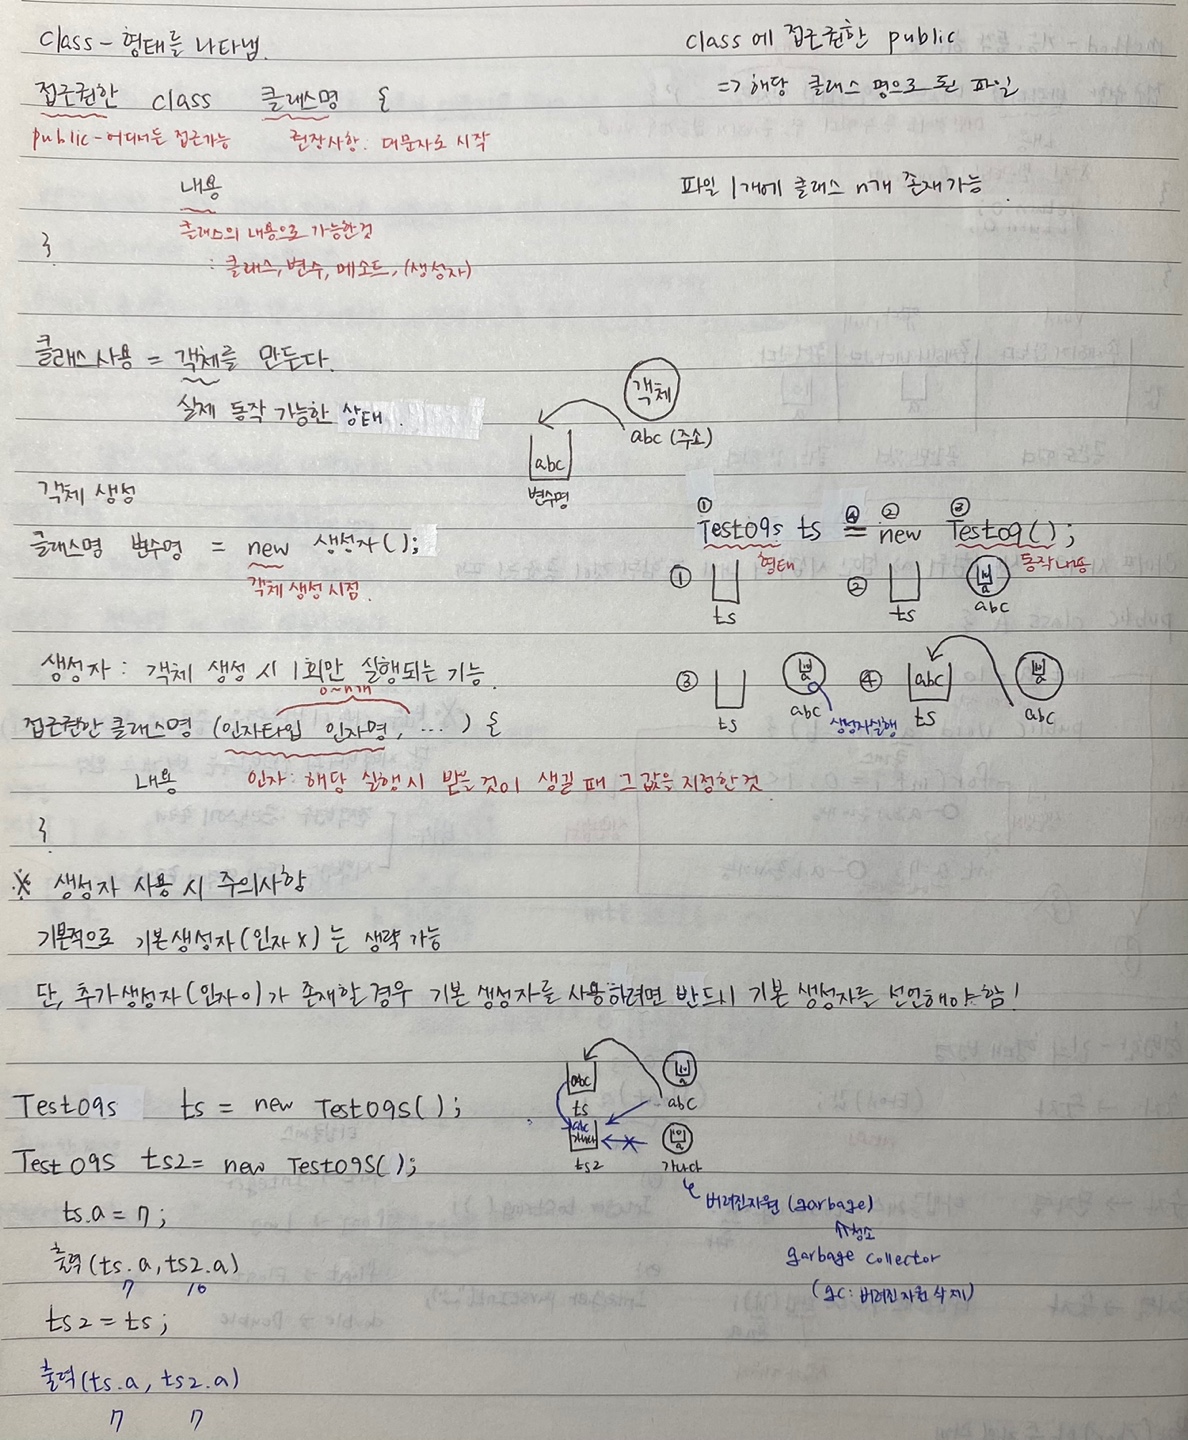 class - 형태를 나타냄.
접근권한 class 클래스명 {
public - 어디서든 접근가능 권장사항: 대문자로 시작
내용
클래스의 내용으로 가능한것
: 클래스, 변수, 메소드, (생성자)
}
class에 접근권한 public
=> 해당 클래스 명으로 된 파일
파일 1개에 클래스 n개 존재가능
클래스사용 = 객체를 만든다.
실제 동작 가능한 상태.
객체
abc (주소)
abc
변수명
객체 생성
클래스명 변수명 = new 생성자();
객체 생성 시점.
① ④ ② ③
Test09s ts = new Test09();
형태 동작내용
① ts ② ts abc
③ ts abc 생성자실행 ④ abc ts abc
생성자 : 객체 생성 시 1회만 실행되는 기능.
0~n개
접근권한 클래스명 (인자타입 인자명, ... ) {
내용 인자: 해당 실행시 받을 것이 생길 때 그 값을 지정한것
}
※ 생성자 사용 시 주의사항
기본적으로 기본생성자(인자x)는 생략 가능
단, 추가생성자(인자o)가 존재할 경우 기본 생성자를 사용하려면 반드시 기본 생성자를 선언해야 함!
Test09s ts = new Test09s();
Test09s ts2 = new Test09s();
ts.a = 7;
출력(ts.a, ts2.a)
7 10
ts2 = ts;
출력(ts.a, ts2.a)
7 7
abc
ts abc
abc
가나다
ts2 가나다
버려진자원 (garbage)
청소
garbage collector
(gc: 버려진 자원 삭제)